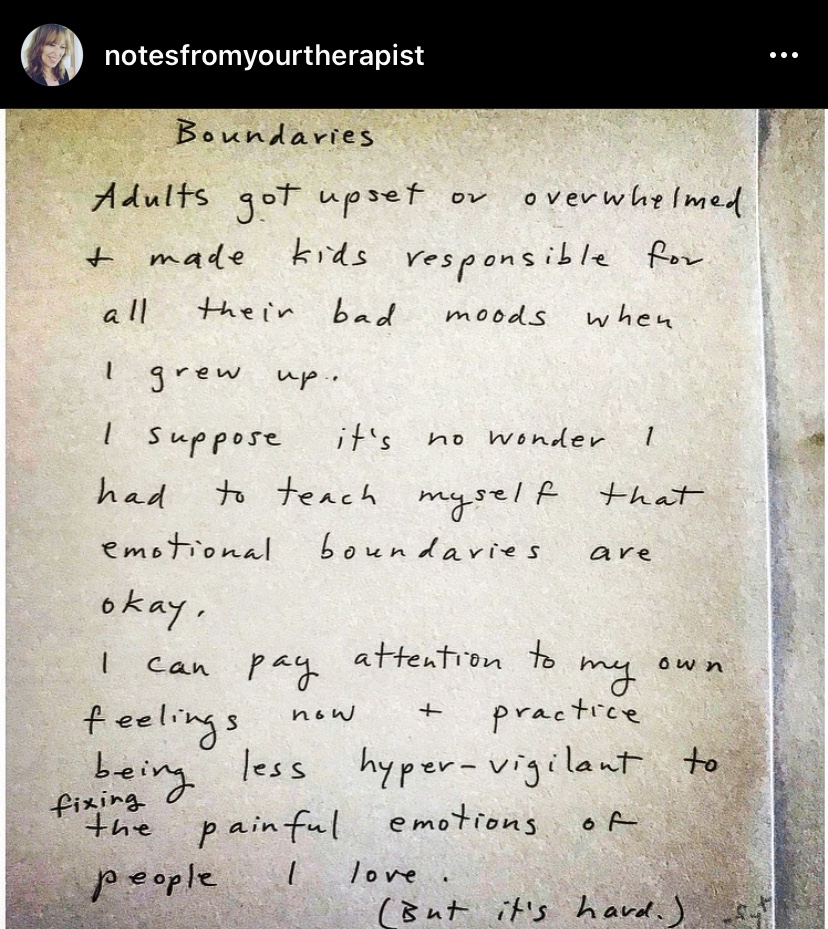 notesfromyourtherapist
Boundaries
Adults got upset or overwhelmed
+ made kids responsible for
all their bad moods when
I grew up..
I suppose it's no wonder I
had to teach myself that
emotional boundaries are
okay.
I can pay attention to my own
feelings now + practice
being less hyper-vigilant to
fixing
the painful emotions of
people I love.
(But it's hard.)